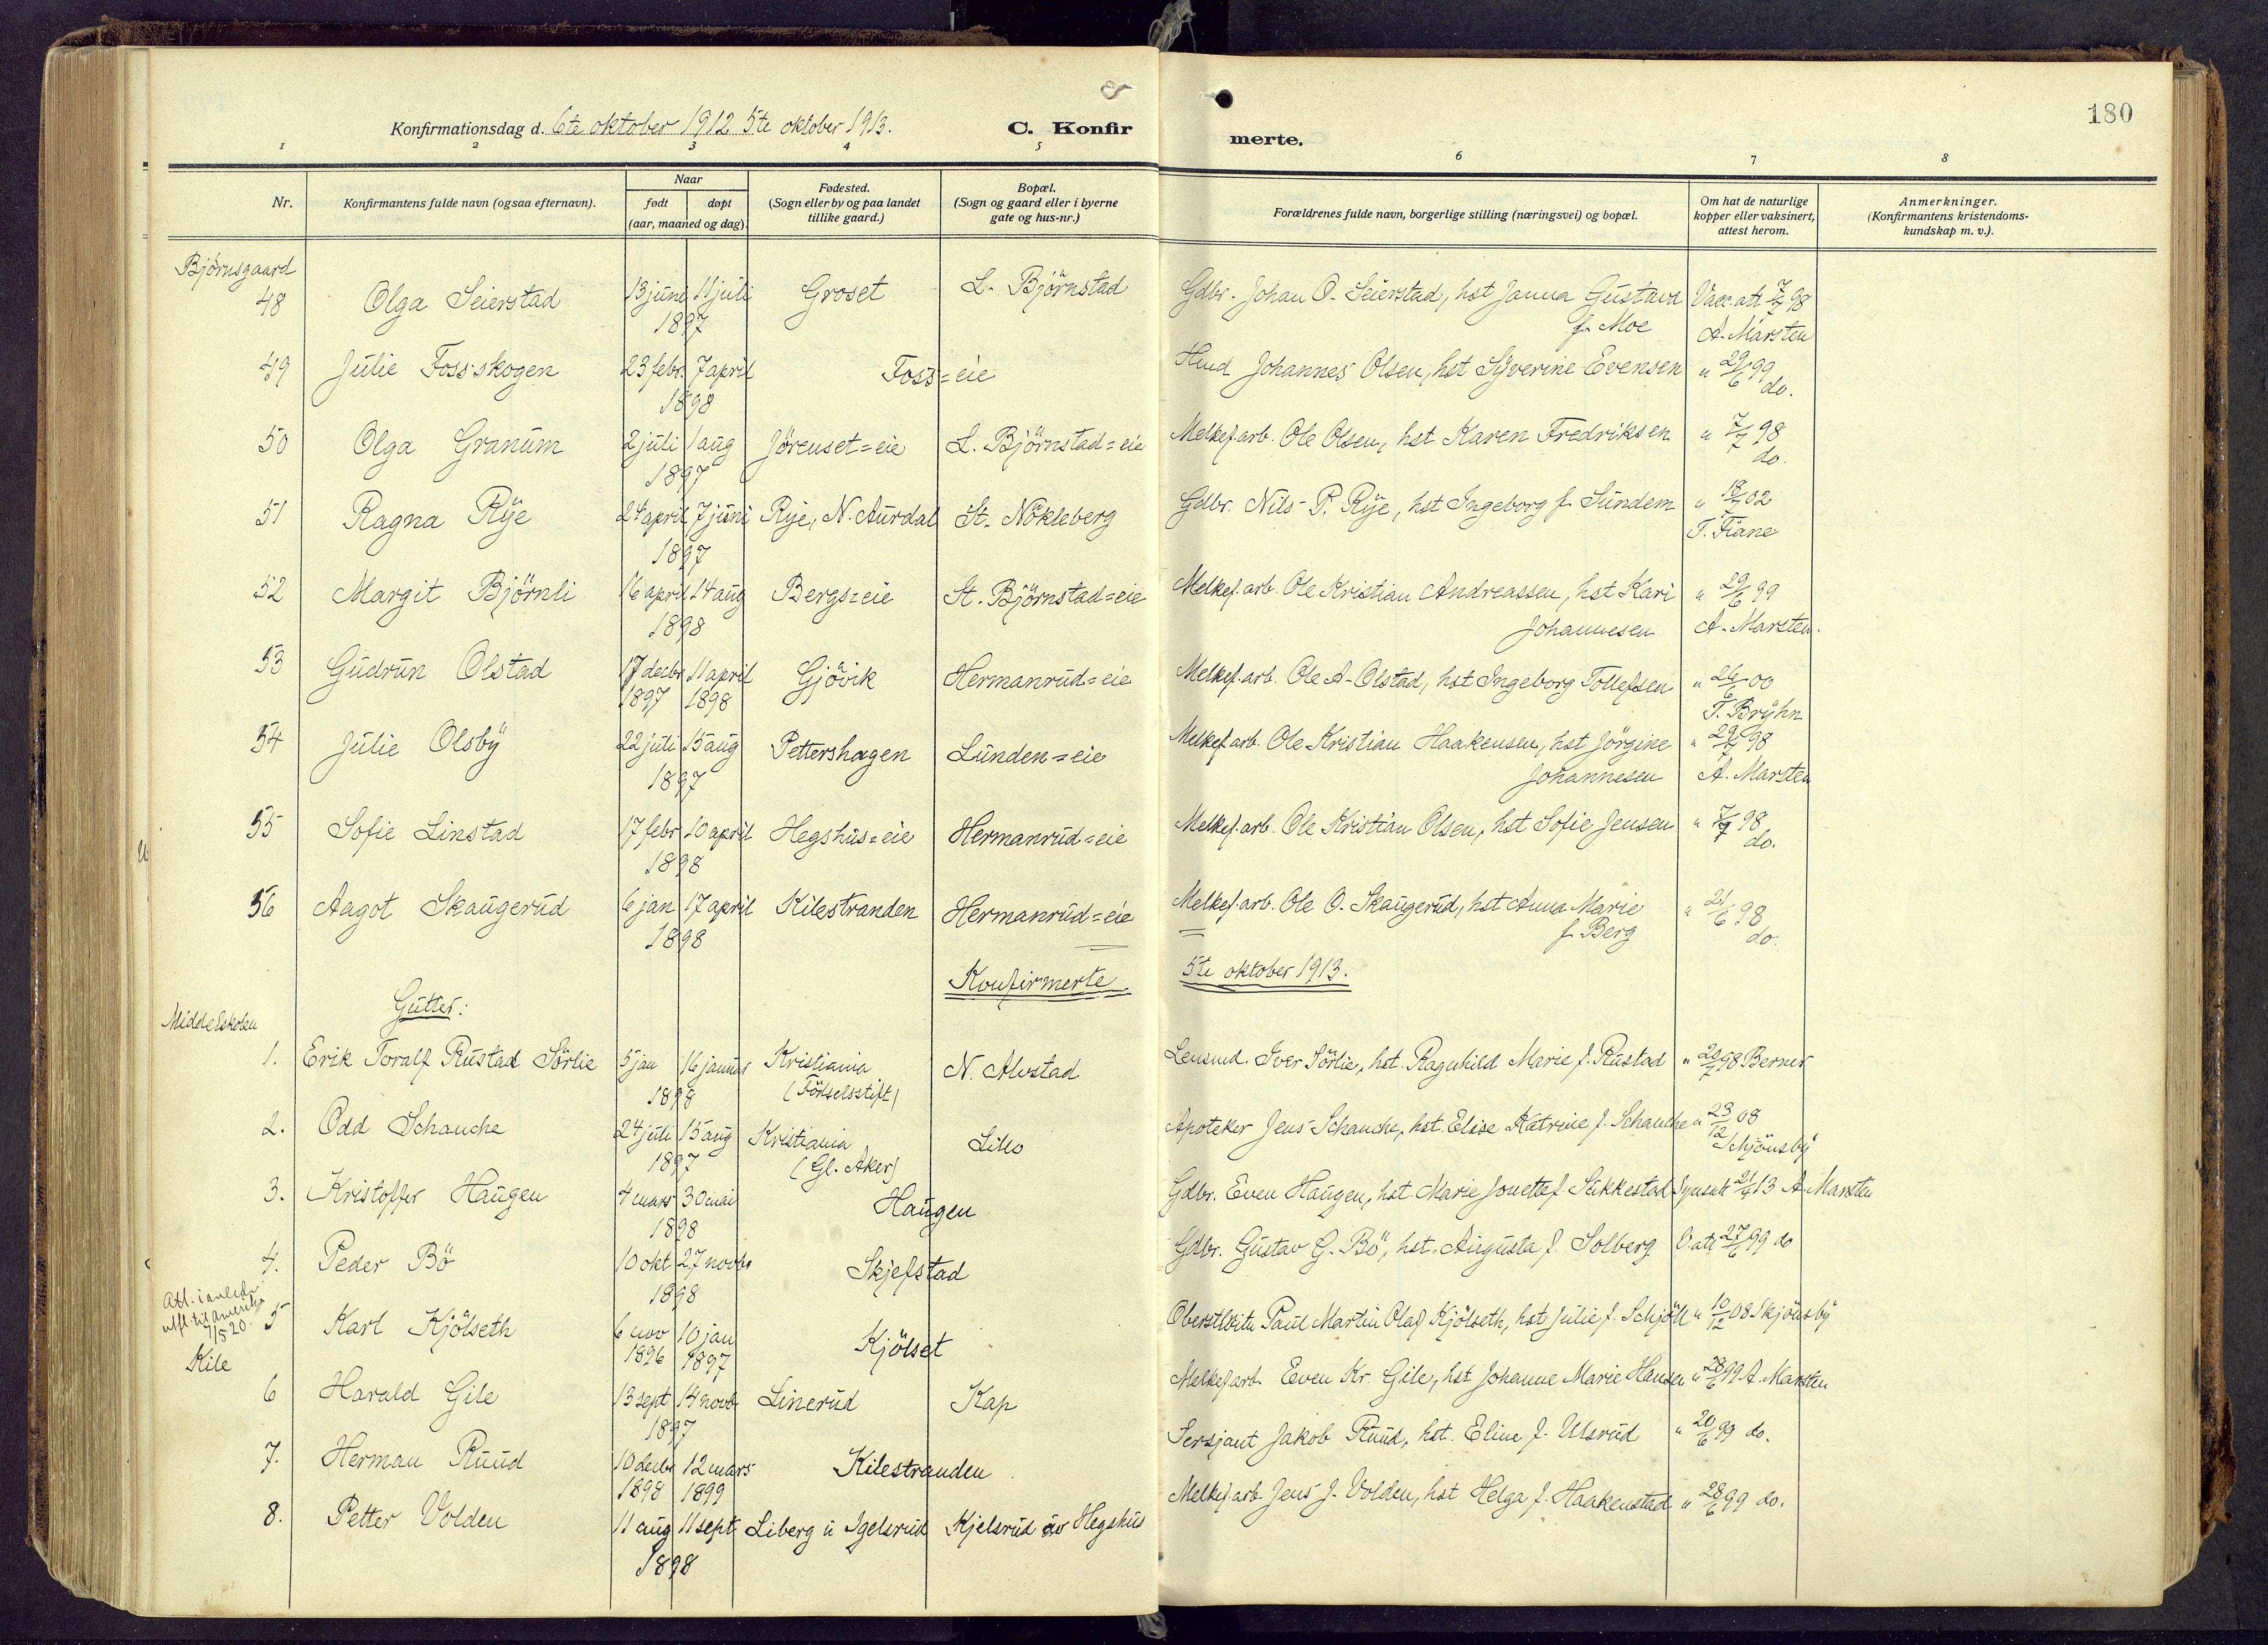 180
Konfirmationsdag d. 6te oktober 1912 5te oktober 1913.
C. Konfirmerte.
1 2 3 4 5 6 7 8
Nr.
Konfirmantens fulde navn (ogsaa efternavn).
Naar
født
døpt
(aar, maaned og dag)
Fødested.
(Sogn eller by og paa landet
tillike gaard.)
Bopæl.
(Sogn og gaard eller i byerne
gate og hus-nr.)
Forældrenes fulde navn, borgerlige stilling (næringsvei) og bopæl.
Om hat de naturlige
kopper eller vaksinert,
attest herom.
Anmerkninger.
(Konfirmantens kristendoms-
kundskap m. v.).
Björnsgaard
48 Olga Seierstad 13 juni 11 juli Groset L. Björnstad Gdbr. Johan O. Seierstad, hst Janna Gustava Vacc. att 7/7 98
1897 f. Moe A. Marsten
49 Julie Foss-skogen 23 febr. 7 april Foss=eie Hmd Johannes Olsen, hst Syverine Evensen " 29/6 99
1898 do.
50 Olga Granum 2 juli 1 aug Jörenset=eie L. Björnstad=eie Melkef.arb. Ole Olsen, hst Karen Fredriksen " 7/7 98
1897 do.
51 Ragna Rye 24 april 7 juni Rye, N. Aurdal St. Nökleberg Gdbr. Nils P. Rye, hst Ingeborg f. Sundem " 18/7 02
1897 T. Fiane
52 Margit Björnli 16 april 14 aug Bergs=eie St. Björnstad=eie Melkef.arb. Ole Kristian Andreassen, hst Kari " 29/6 99
1898 Johannesen A. Marsten.
53 Gudrun Olstad 17 decbr 11 april Gjövik Hermanrud=eie Melkef.arb. Ole A. Olstad, hst Ingeborg Tollefsen " 26/6 00
1897 1898 T. Bryhn
54 Julie Olsby 22 juli 15 aug Pettershagen Lunden=eie Melkef.arb. Ole Kristian Haakensen, hst Jörgine " 29/7 98
1897 Johannesen A. Marsten
55 Sofie Linstad 17 febr 10 april Hegshus=eie Hermanrud=eie Melkef.arb. Ole Kristian Olsen, hst Sofie Jensen " 7/9 98
1898 do.
56 Aagot Skaugerud 6 jan 17 april Kilestranden Hermanrud=eie Melkef.arb. Ole O. Skaugerud, hst Anna Marie " 21/6 98
1898 f. Berg do.
Konfirmerte 5te oktober 1913.
Gutter:
Middelskolen
1. Erik Toralf Rustad Sörlie 5 jan 16 januar Kristiania N. Alvstad Lensmd. Iver Sörlie, hst. Ragnhild Marie f. Rustad " 20/7 98 Berner
1898 (Födselsstift)
2. Odd Schanche 24 juli 15 aug Kristiania Lillo Apoteker Jens Schanche, hst. Elise Katrine f. Schanche " 23/12 08
1897 (Gl. Aker) Schjönsby
3. Kristoffer Haugen 4 mars 30 mai Haugen Gdbr. Even Haugen, hst Marie Jonette f Stikkestad 21/4 13 A. Marsten
1898
4. Peder Bö 10 okt 27 novbr Skjefstad Gdbr. Gustav G. Bö, hst. Augusta f. Solberg V. att 27/6 99 do
1898
Att. i anledn.
utfl. til Amerika
7/5 20.
5 Karl Kjölseth 6 nov 10 jan Kjölset Oberstlöitn Paul Martin Olaf Kjölseth, hst Julie f. Schjöll " 10/12 08 Skjönsby
1896 1897
Kile
6 Harald Gile 13 sept 14 novb Linerud Kap Melkef.arb. Even Kr. Gile, hst Johanne Marie Hansen " 28/6 99 A. Marsten
1897
7. Herman Ruud 10 decbr 12 mars Kilestranden Sersjant Jakob Ruud, hst. Eline f. Ulsrud " 20/6 99 do.
1898 1899
8. Petter Volden 11 aug 11 sept Liberg u Igelsrud Kjelsrud av Hegshus Melkef.arb. Jens J. Volden, hst Helga f. Haakenstad " 28/6 99 do.
1898